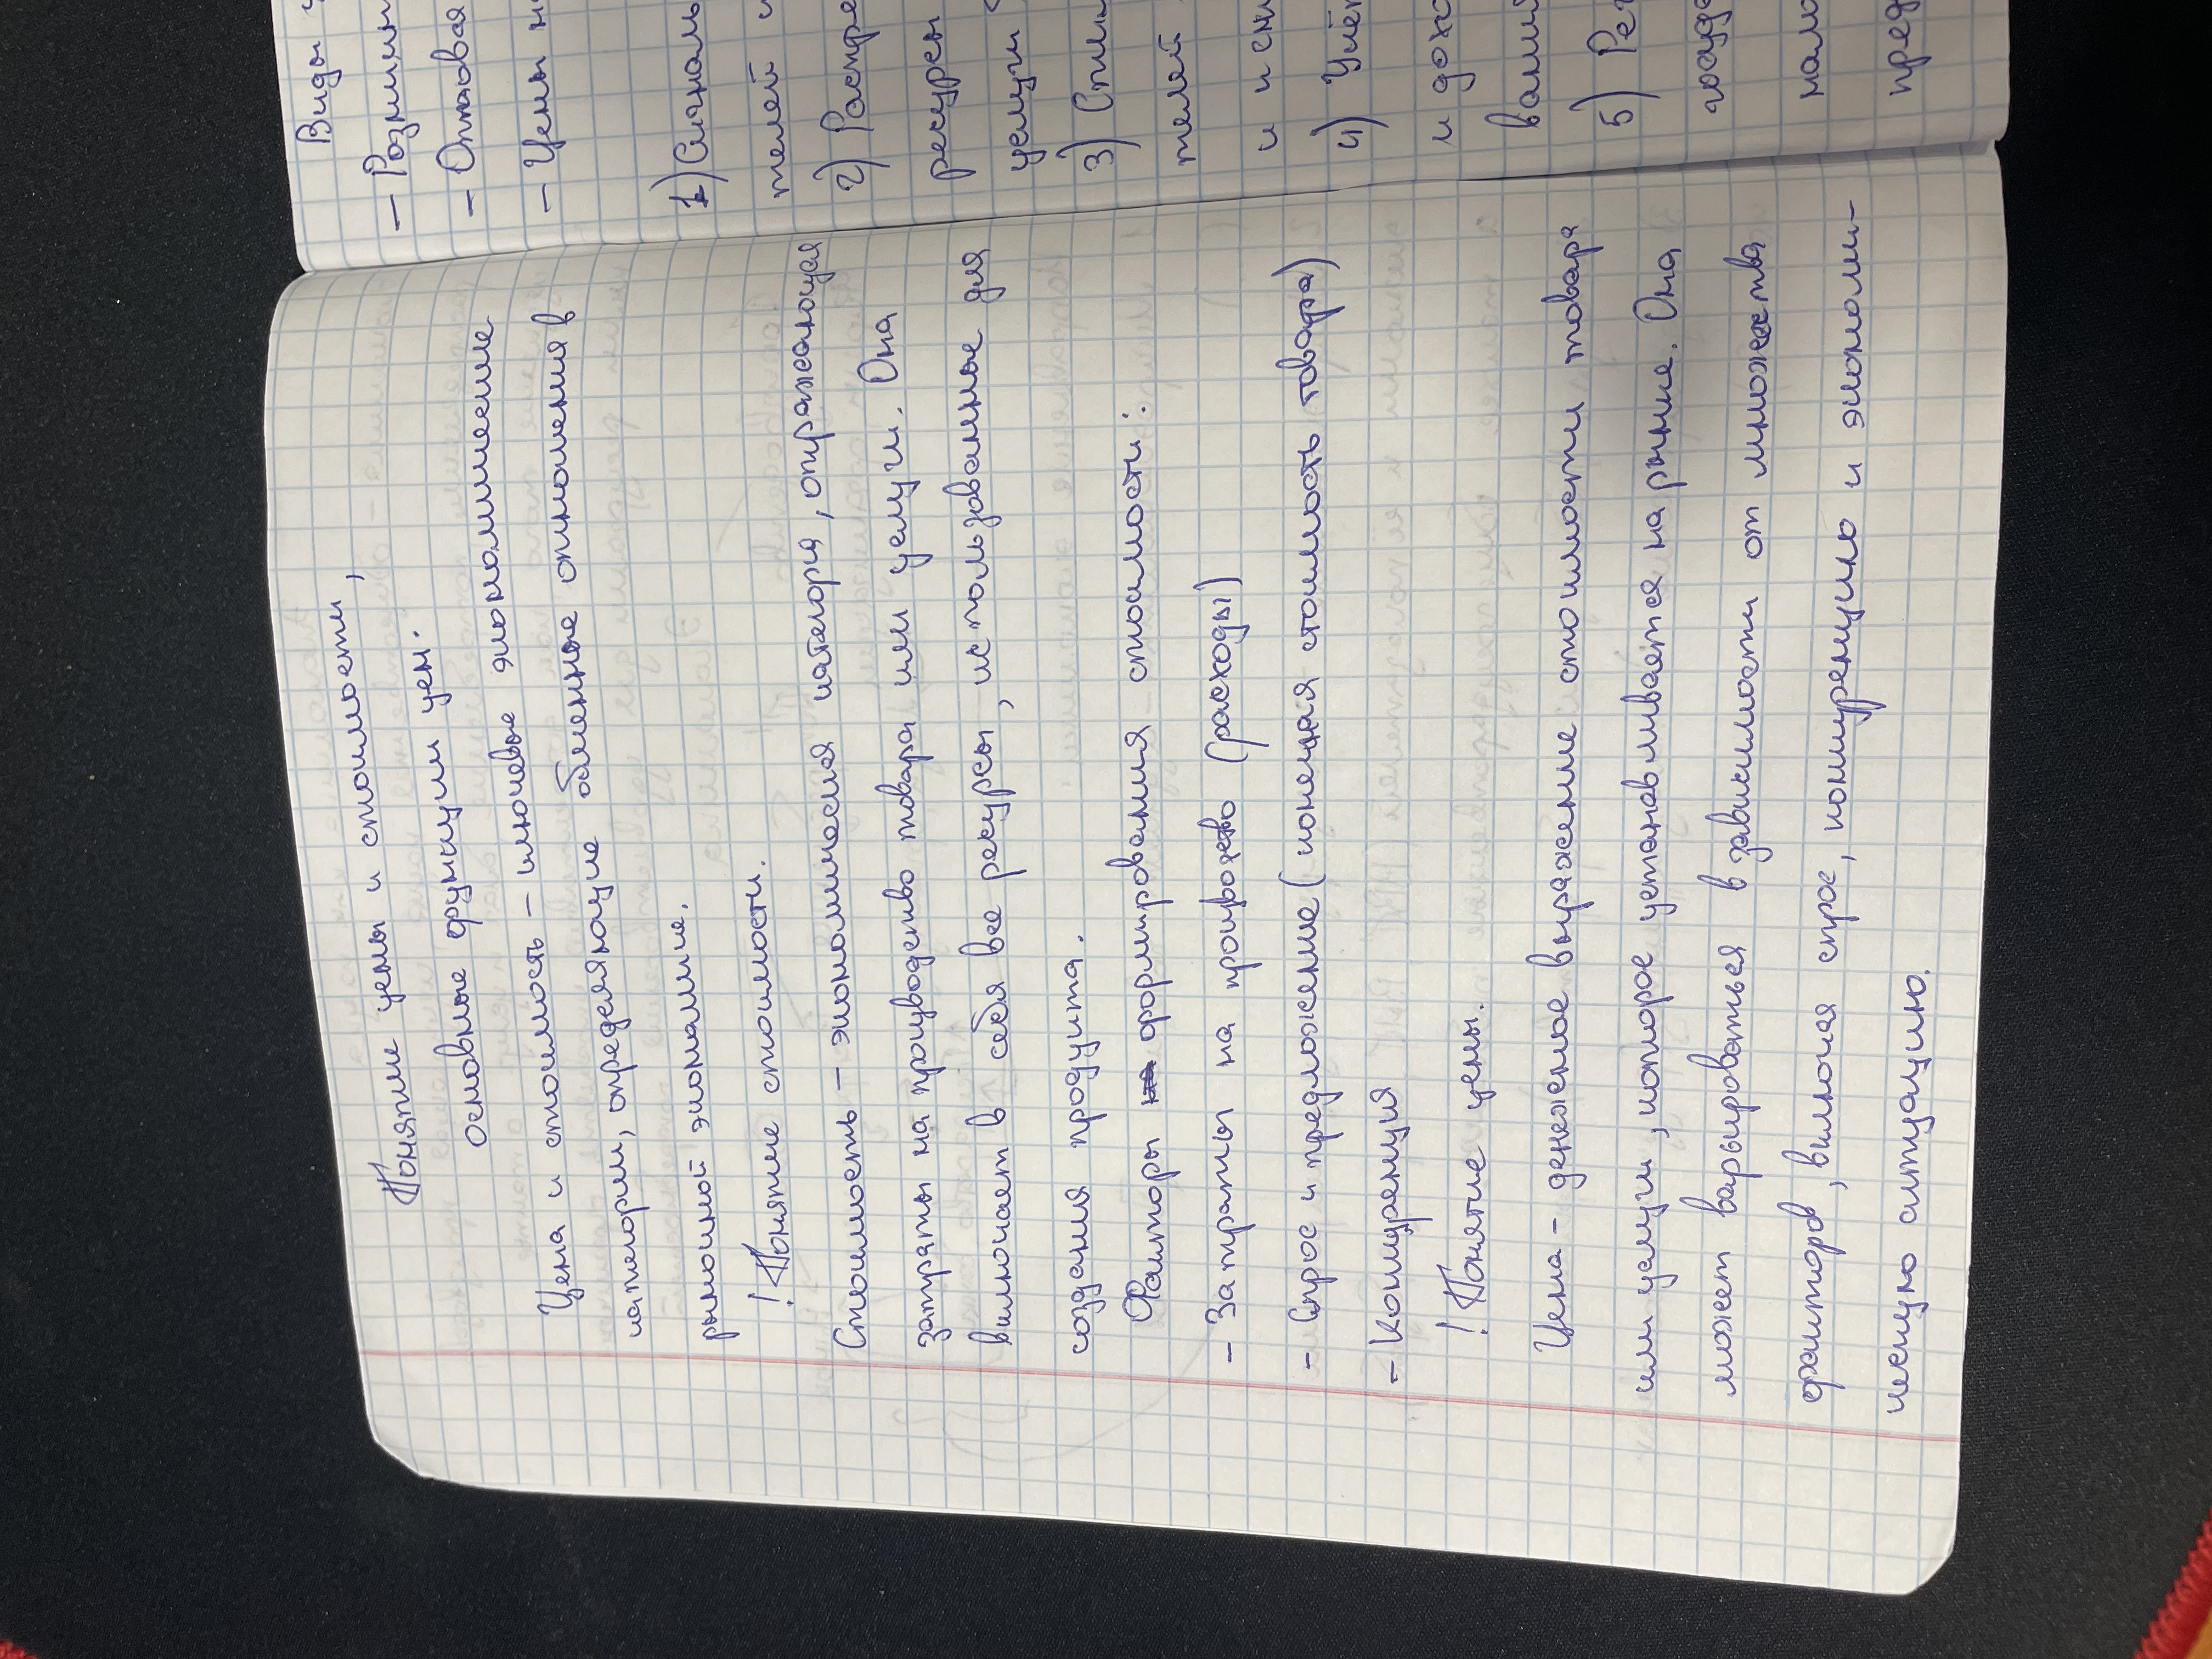 Понятие цены и стоимости,
основные функции цен.
Цена и стоимость – ключевые экономические
категории, определяющие обменные отношения в
рыночной экономике.
! Понятие стоимости.
Стоимость – экономическая категория, отражающая
затраты на производство товара или услуги. Она
включает в себя все ресурсы, использованные для
создания продукта.
Факторы формирования стоимости:
– Затраты на производство (расходы)
– Спрос и предложение (конечная стоимость товара)
– Конкуренция
! Понятие цены.
Цена – денежное выражение стоимости товара
или услуги, которое устанавливается на рынке. Она
может варьироваться в зависимости от множества
факторов, включая спрос, конкуренцию и экономи-
ческую ситуацию.
Виды
– Розничн
– Оптовая
– Цены
1) Сигналь
телей
2) Распре
ресурсы
услуги
3) Стиму
телей
и
4) Учёт
и дохо
вания
5) Рег
госуда
мало
пред